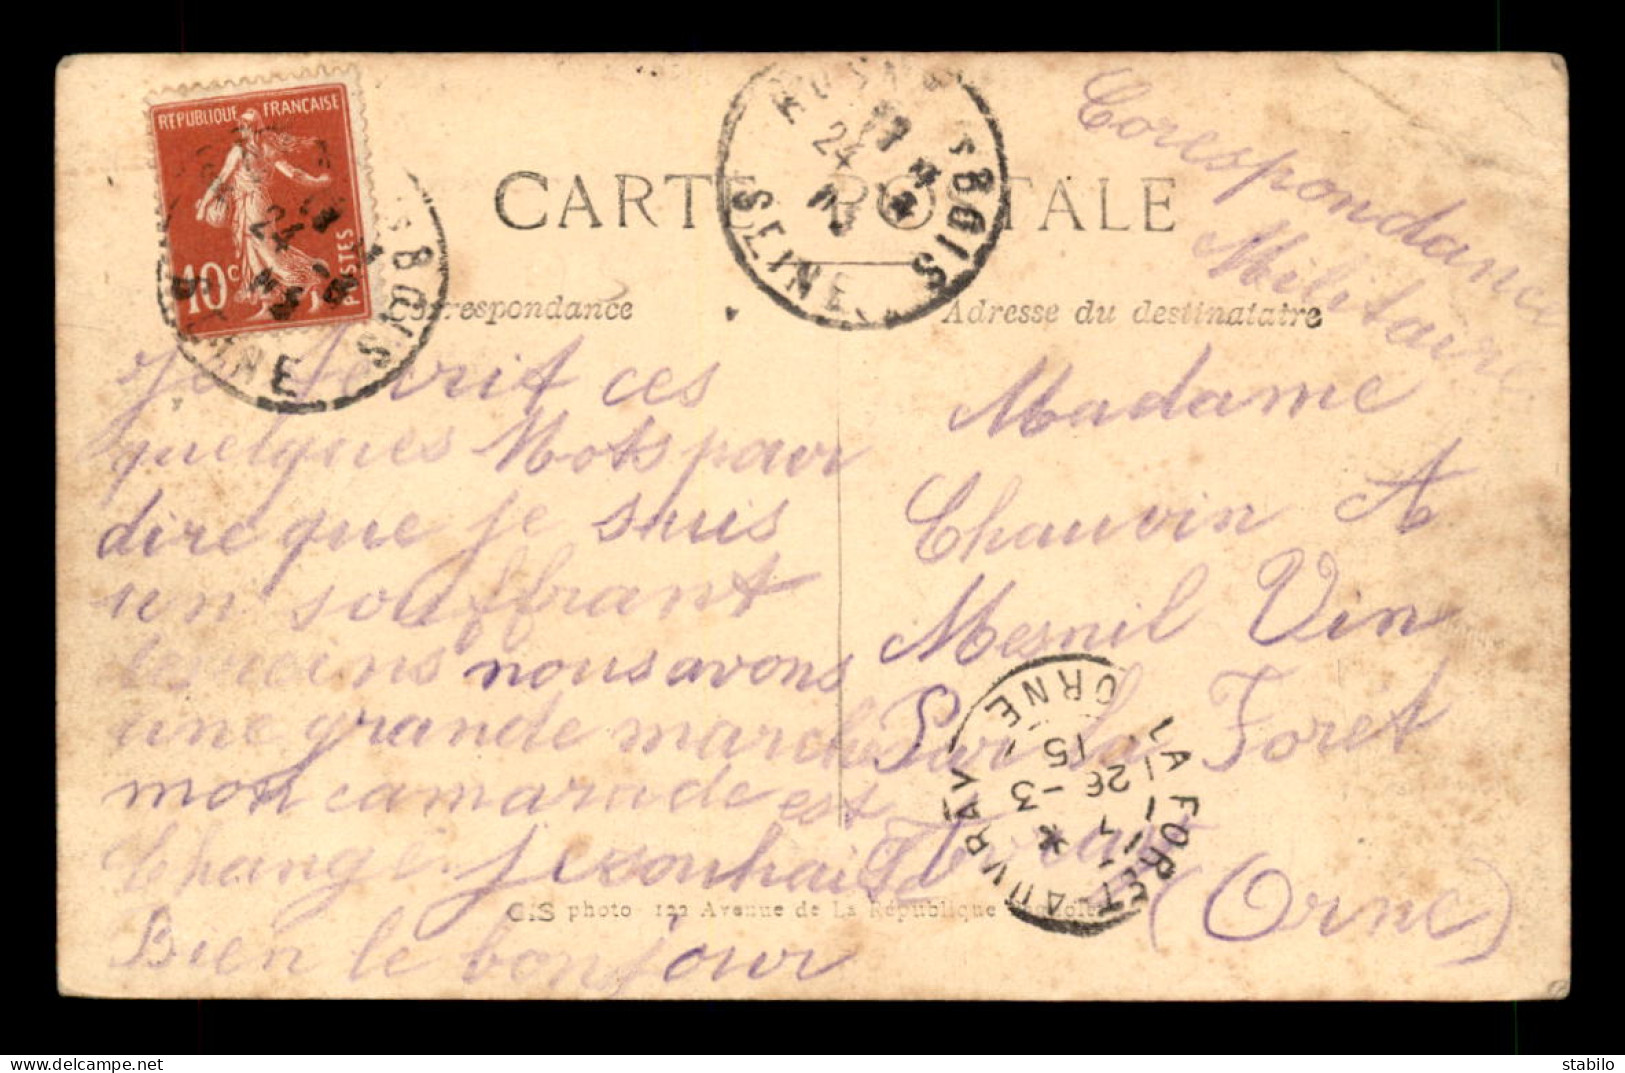 REPUBLIQUE FRANÇAISE
10c POSTES
CARTE POSTALE
24
SEINE
BOIS
24
SEINE
BOIS
Corespondance
Militaire
Correspondance
Adresse du destinataire
Je écrit ces
quelques Mots pour
dire que je suis
un souffrant
nous avons
une grande marche
mon camarade est
Changé je souhaite
Bien le bonjour
Madame
Chauvin A
Mesnil Vin
Sur la Forêt
(Orne)
LA FORET AUVRAY
ORNE
26 -3
15
photo 122 Avenue de La République